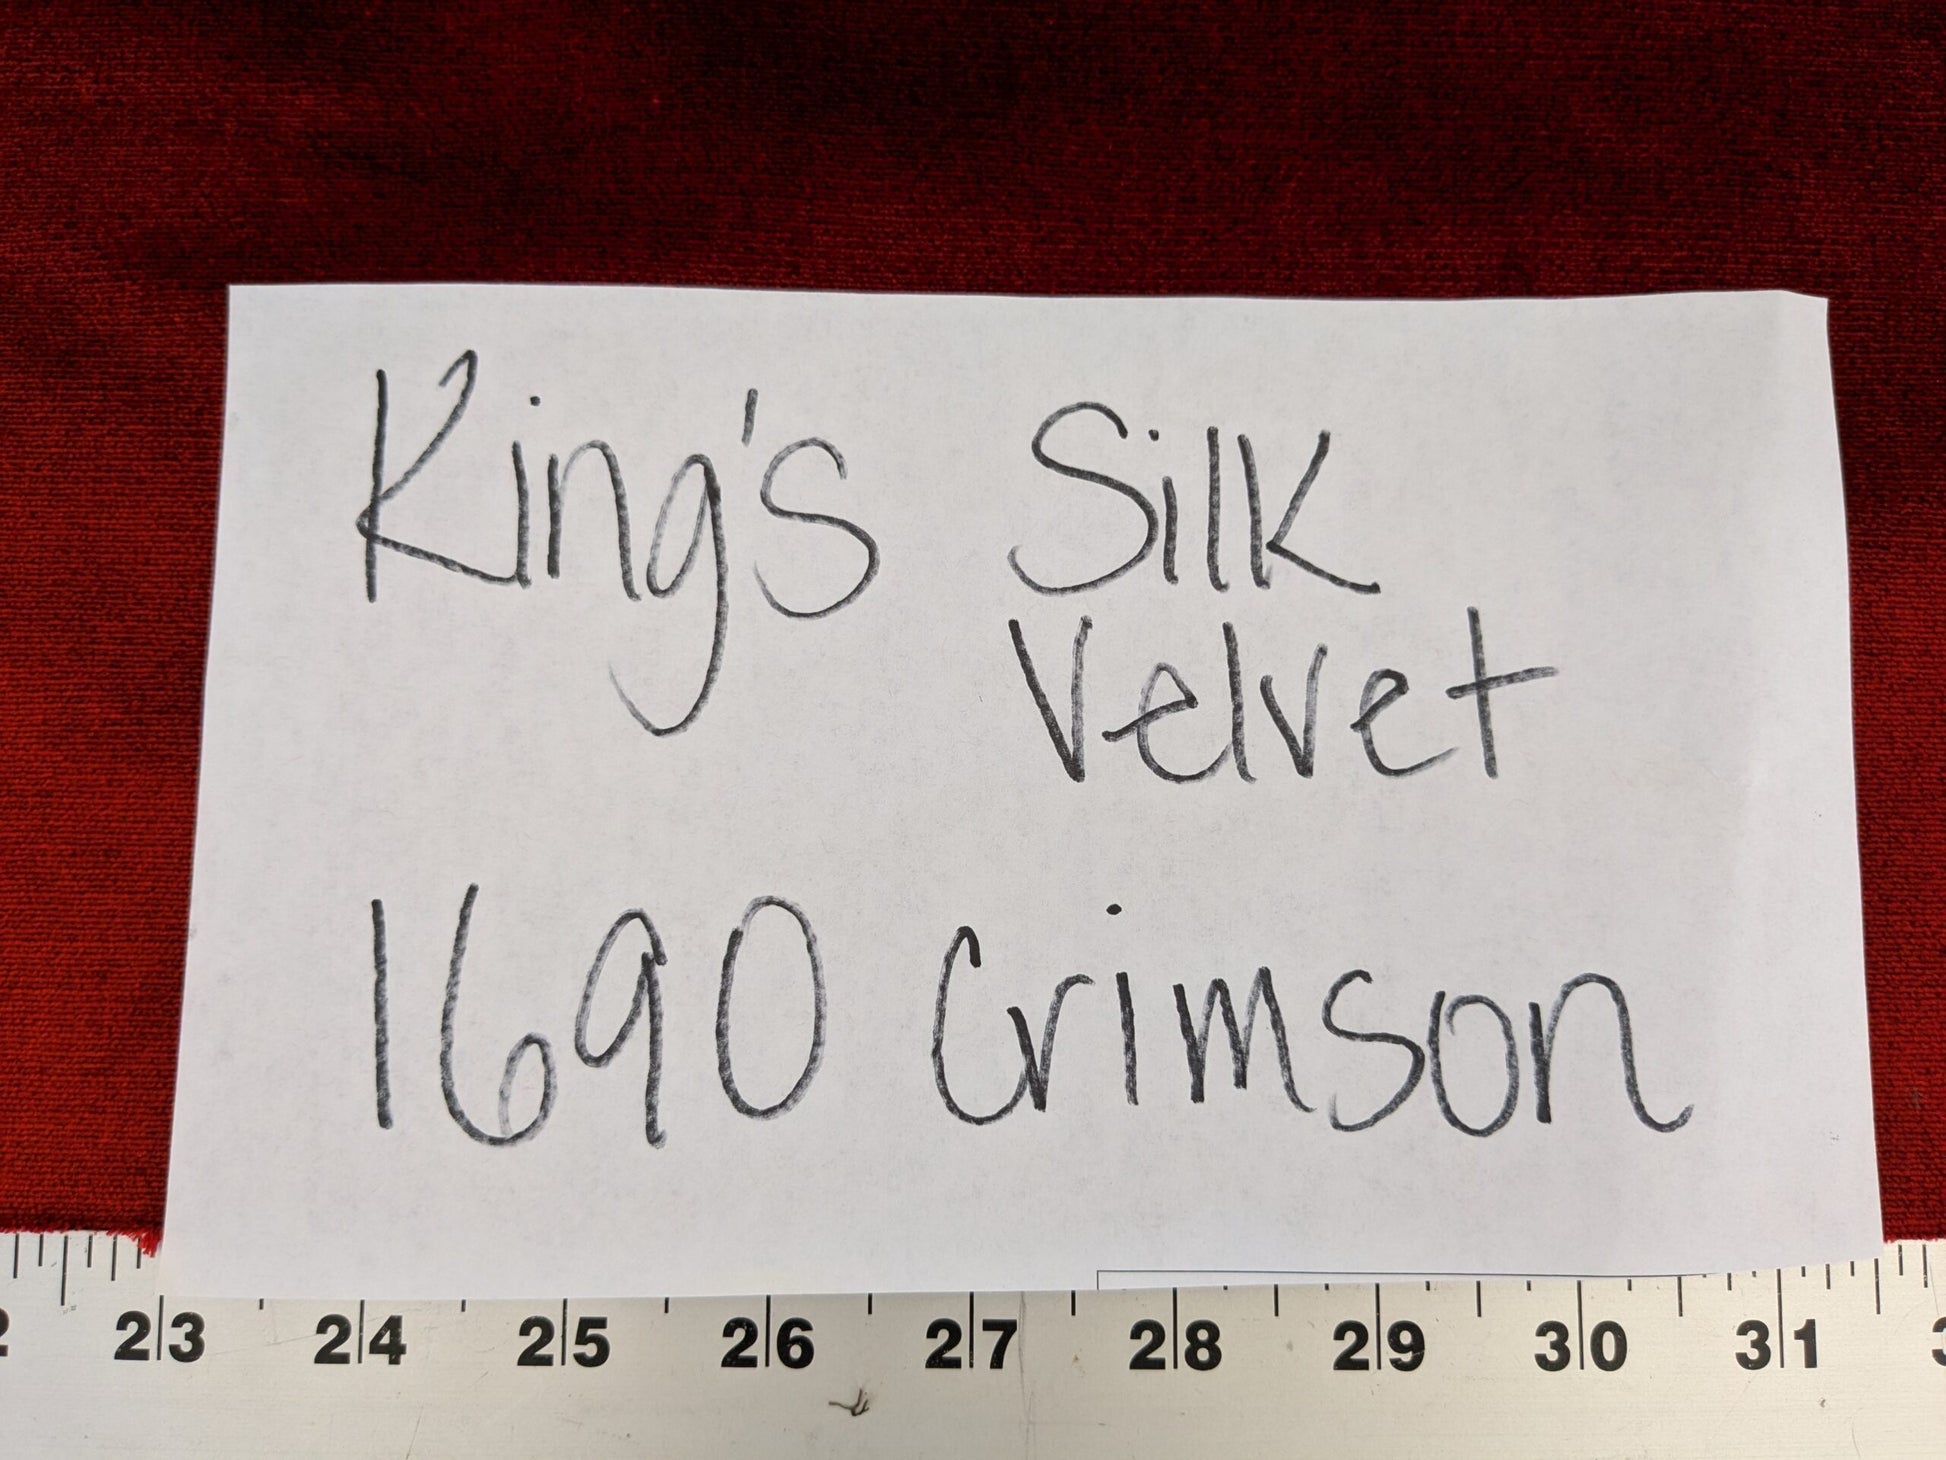 King's Silk
Velvet
1690 Crimson
23 24 25 26 27 28 29 30 31